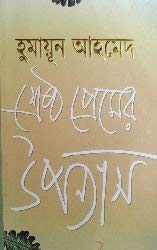 হুমায়ূন আহমেদ
শ্রেষ্ঠ প্রেমের
উপন্যাস